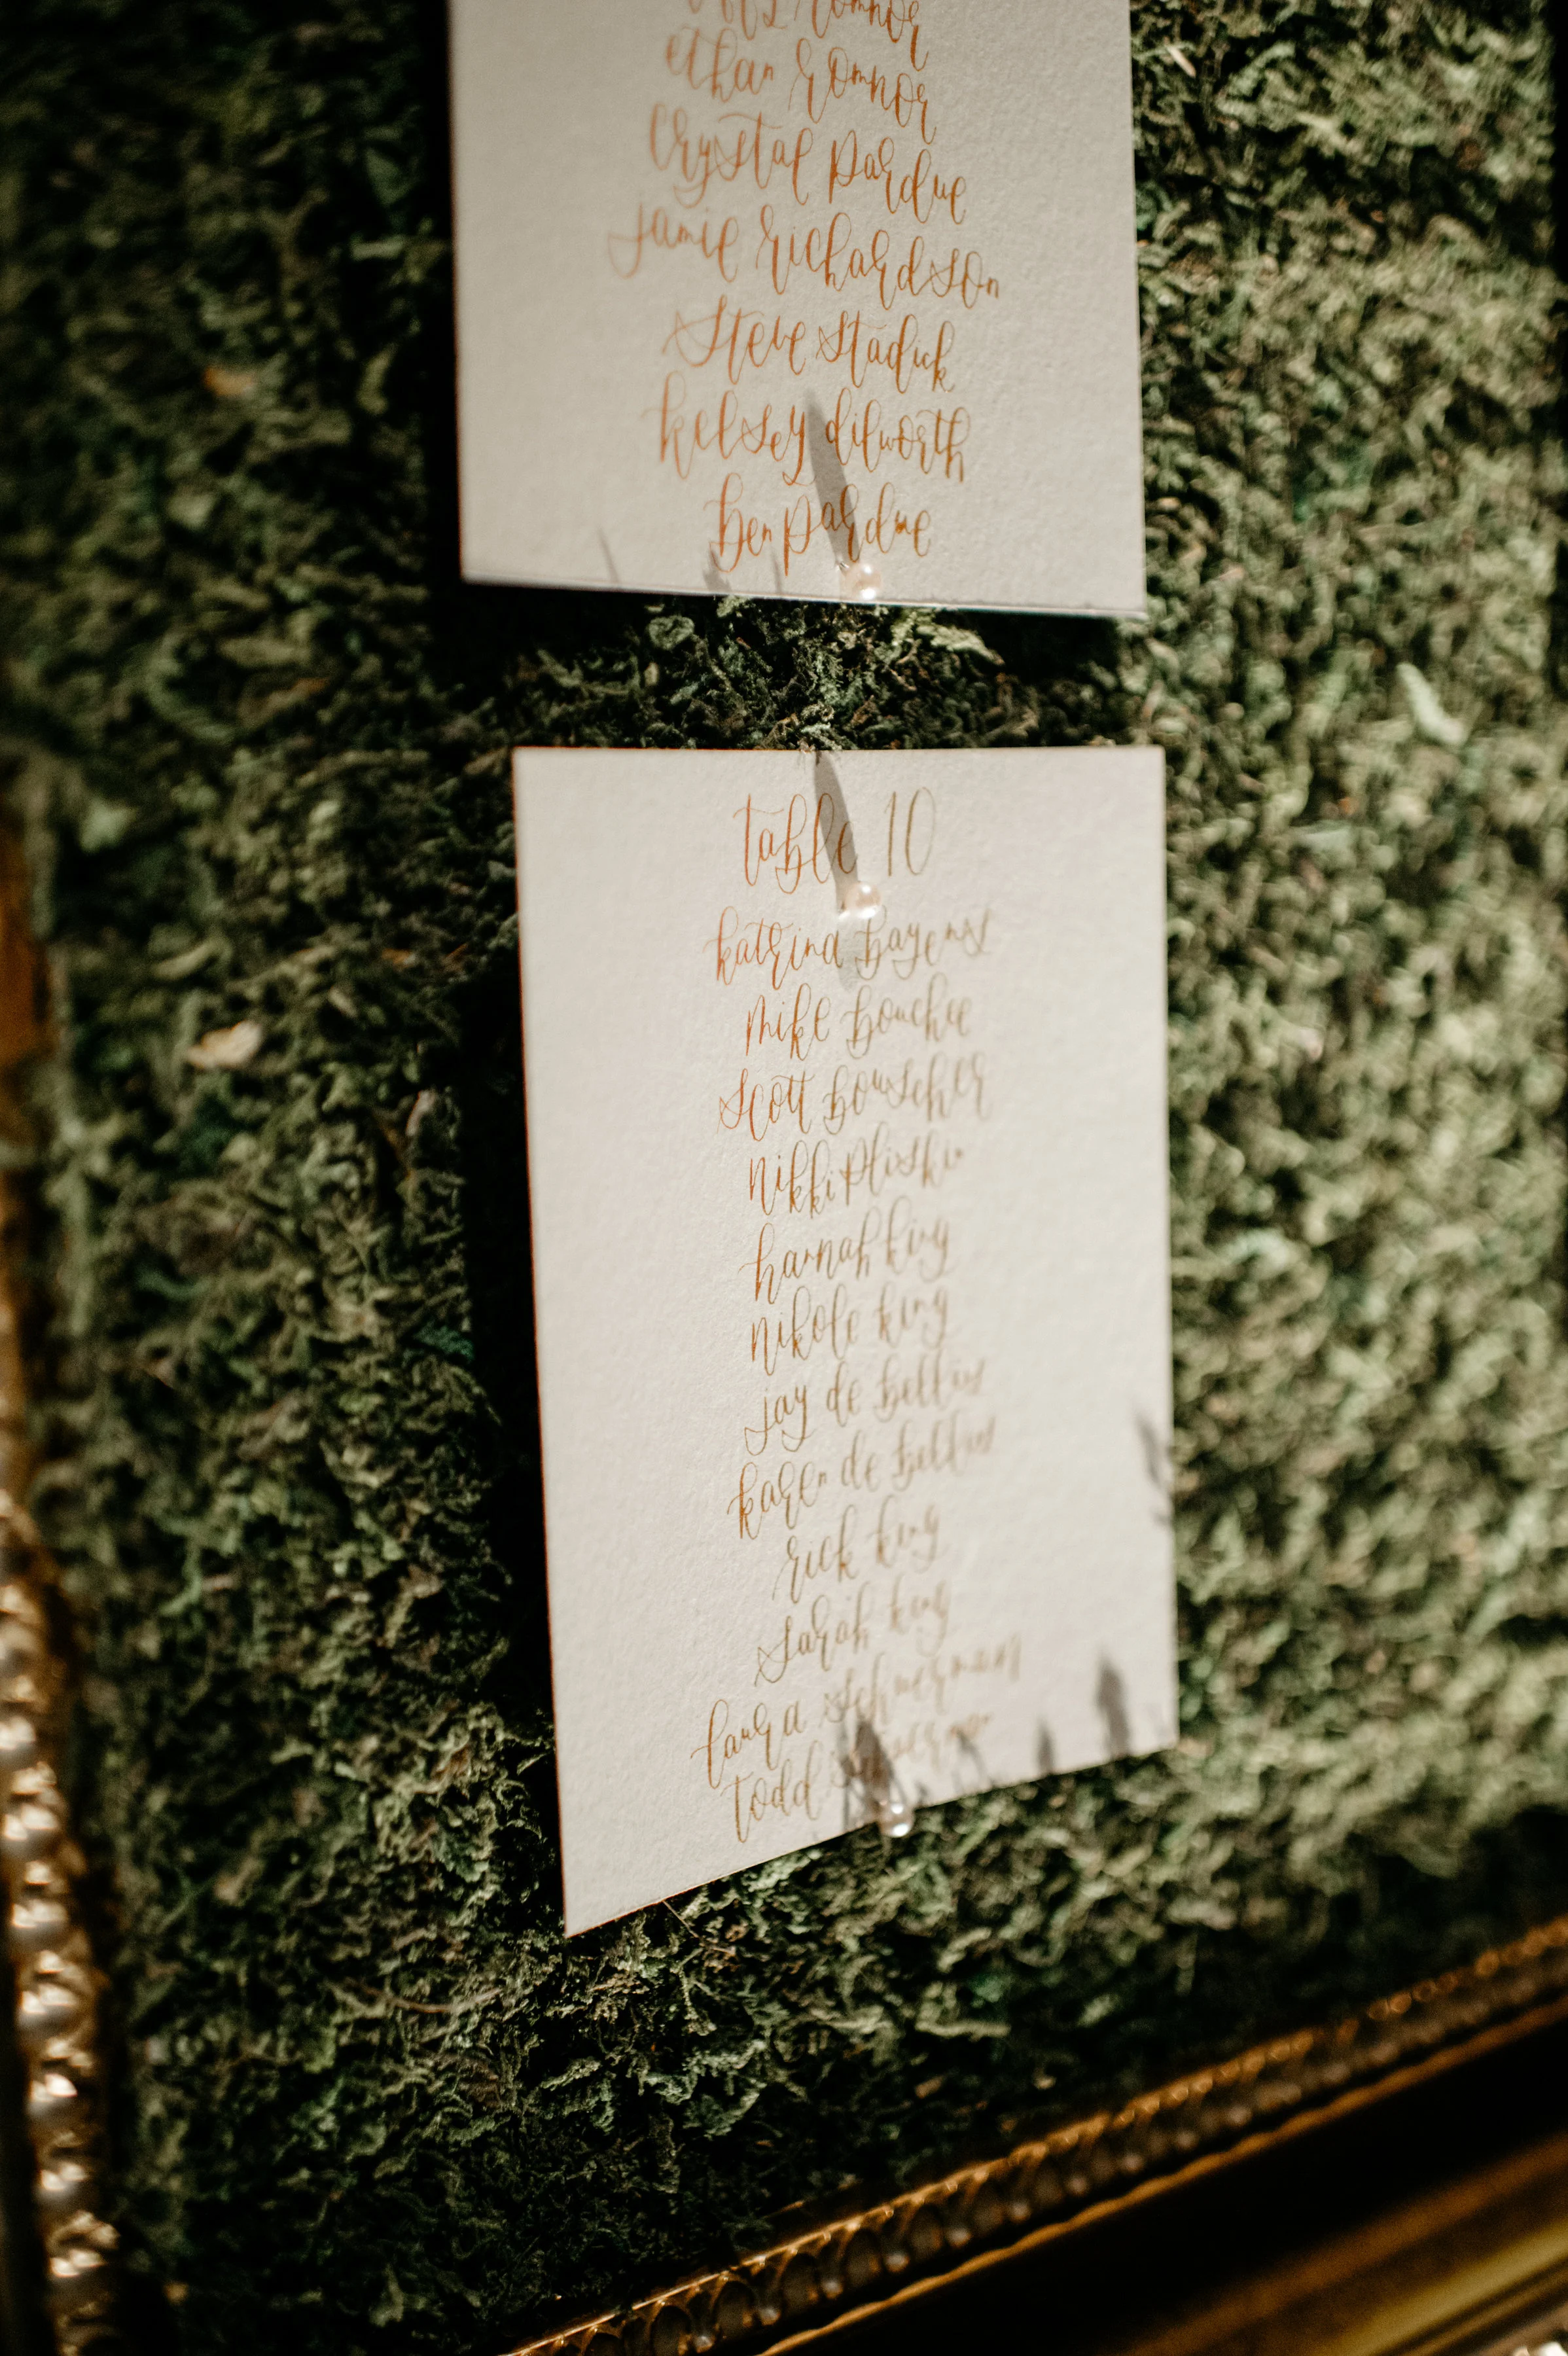 connor
ethan connor
crystal pardue
jamie richardson
steve staduk
kelsey dilworth
ben pardue
table 10
katrina bayens
mike bouchee
scott bouscher
nikki pliski
hannah king
nikole king
jay de bettins
karen de bettins
rick king
sarah king
laura schuerman
todd